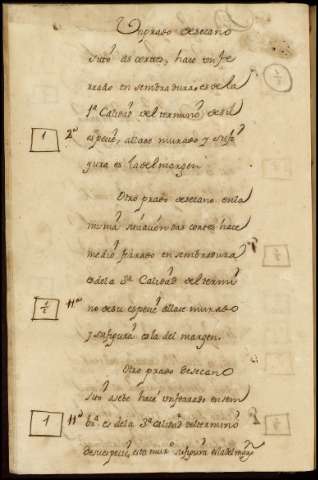 Un prado de secano
sito as cortes, hace un fe
rrado en sembradura, es de la
1ª Calidad del termino, de su
1 2ª especie, allase murado y su fi
gura es la del margen
Otro prado de secano en la
misma situacion das cortes hace
medio ferrado en sembradura
es de la 3ª Calidad del termi
½ 11ª no de su especie allase murado
y su figura es la del margen.
Otro prado de secano
hace un ferrado en sem
1 11ª brª es de la 3ª calidad del termino
de su especie, esta murº su figura es la del margn